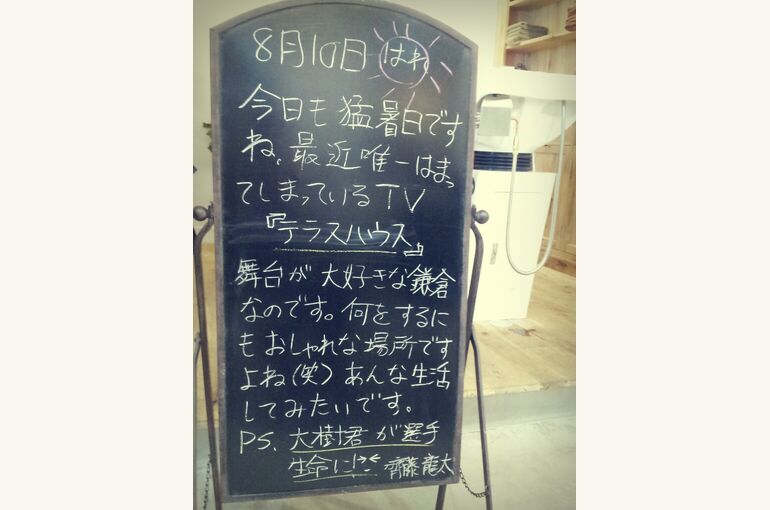 8月10日 はれ
今日も猛暑日です
ね。最近唯一はまっ
てしまっているTV
『テラスハウス』
舞台が大好きな鎌倉
なのです。何をするに
もおしゃれな場所です
よね(笑)あんな生活
してみたいです。
PS. 大樹君が選手
生命に!>< 齊藤龍太